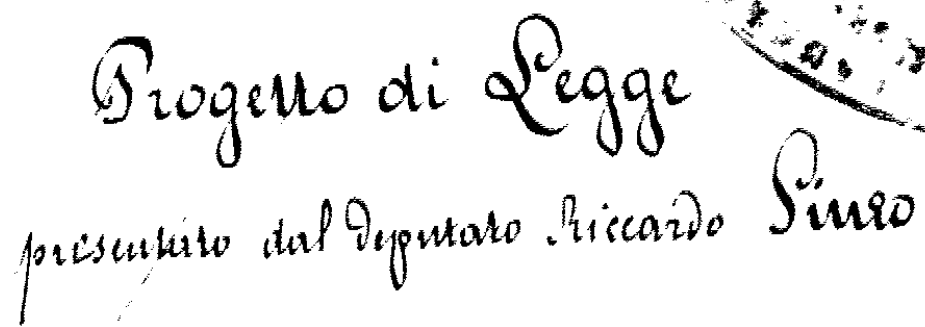 Progetto di Legge
presentato dal Deputato Riccardo Sineo